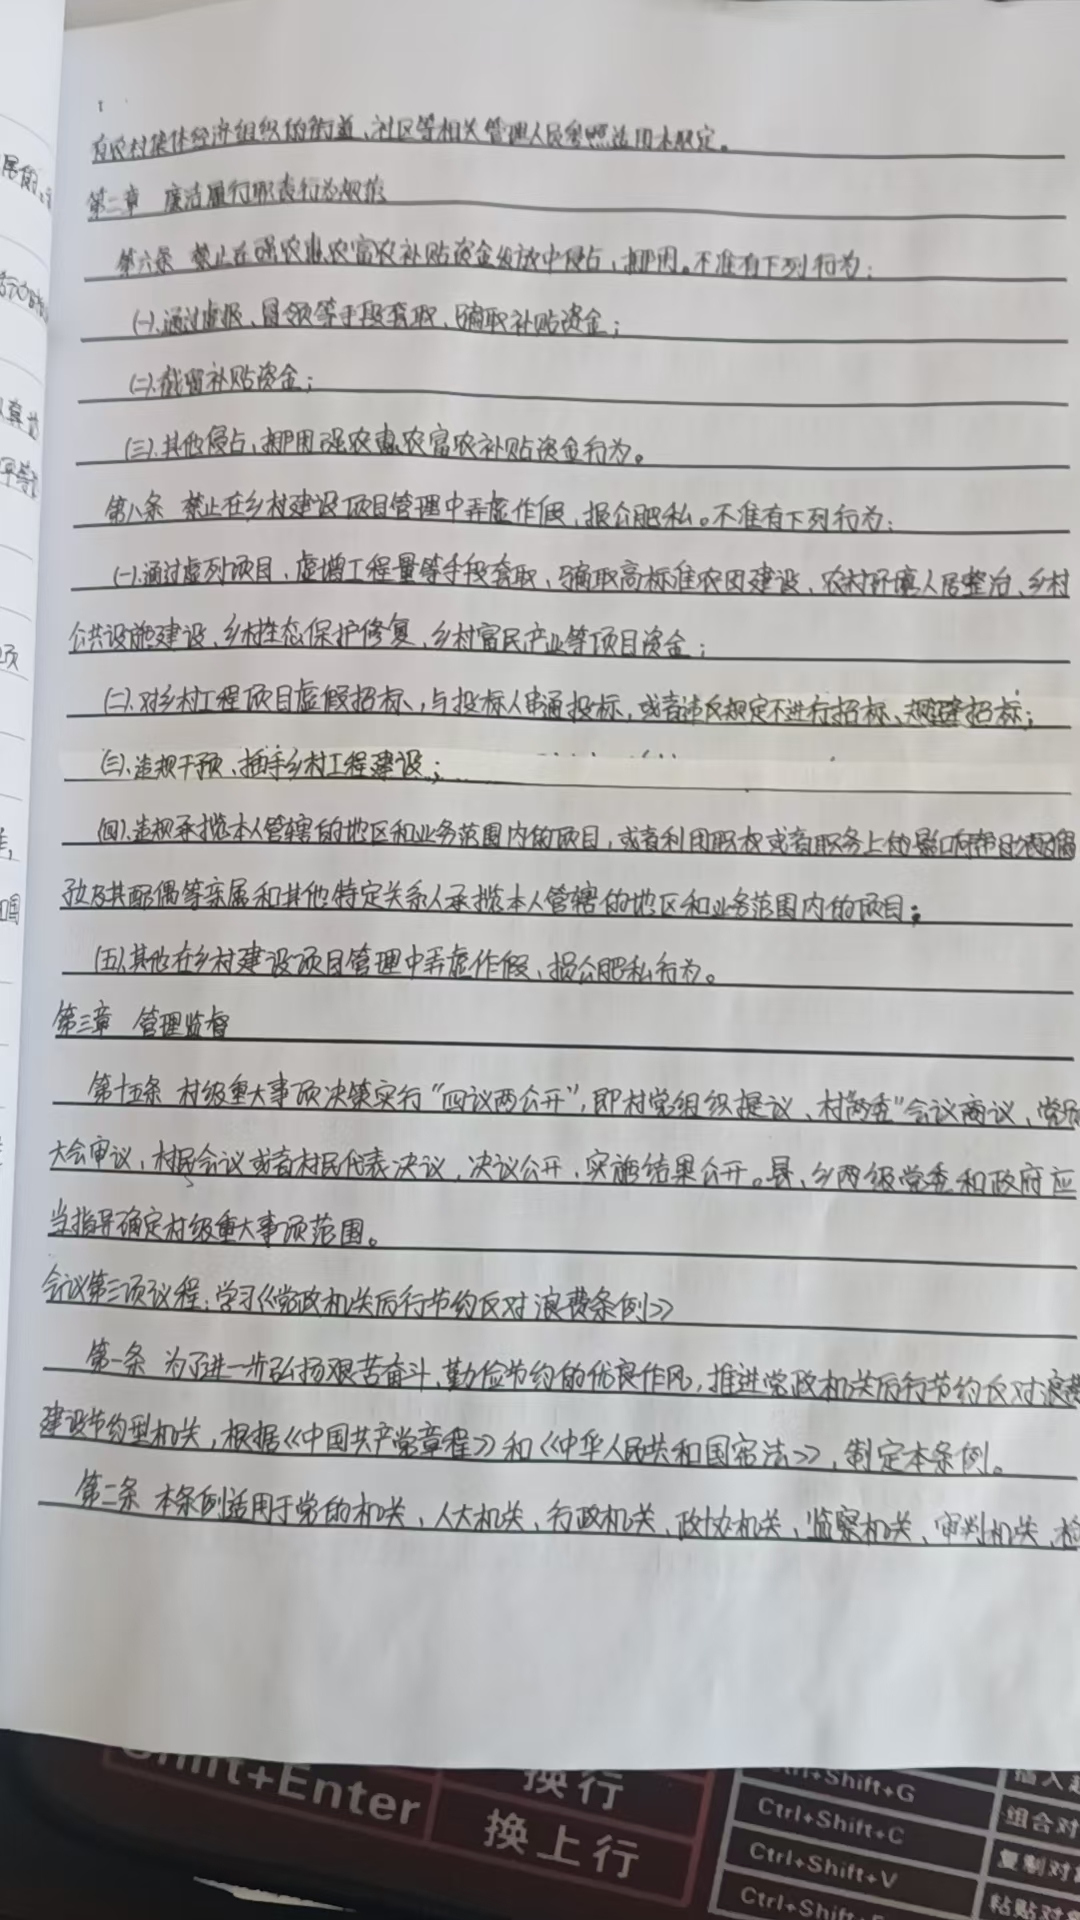 有农村集体经济组织的街道、社区等相关管理人员参照适用本规定。
第二章 廉洁履行职责行为规范
第六条 禁止在强农惠农富农补贴资金发放中侵占、挪用。不准有下列行为：
(一).通过虚报、冒领等手段套取、骗取补贴资金；
(二).截留补贴资金；
(三).其他侵占、挪用强农惠农富农补贴资金行为。
第八条 禁止在乡村建设项目管理中弄虚作假，损公肥私。不准有下列行为：
(一).通过虚列项目、虚增工程量等手段套取、骗取高标准农田建设、农村环境人居整治、乡村
公共设施建设、乡村生态保护修复，乡村富民产业等项目资金；
(二).对乡村工程项目虚假招标、与投标人串通投标，或者违反规定不进行招标、规避招标；
(三).违规干预、插手乡村工程建设；
(四).违规承揽本人管辖的地区和业务范围内的项目，或者利用职权或者职务上的影响帮助
及其配偶等亲属和其他特定关系人承揽本人管辖的地区和业务范围内的项目；
(五).其他在乡村建设项目管理中弄虚作假、损公肥私行为。
第三章 管理监督
第十五条 村级重大事项决策实行“四议两公开”，即村党组织提议、村“两委”会议商议、党员
大会审议，村民会议或者村民代表决议，决议公开，实施结果公开。县、乡两级党委和政府应
当指导确定村级重大事项范围。
会议第三项议程：学习《党政机关厉行节约反对浪费条例》
第一条 为了进一步弘扬艰苦奋斗、勤俭节约的优良作风，推进党政机关厉行节约反对浪费
建设节约型机关，根据《中国共产党章程》和《中华人民共和国宪法》，制定本条例。
第二条 本条例适用于党的机关、人大机关、行政机关、政协机关、监察机关、审判机关、检
Shift+Enter 换行
换上行
Ctrl+Shift+G
Ctrl+Shift+C 组合对
Ctrl+Shift+V 复制对
粘贴对